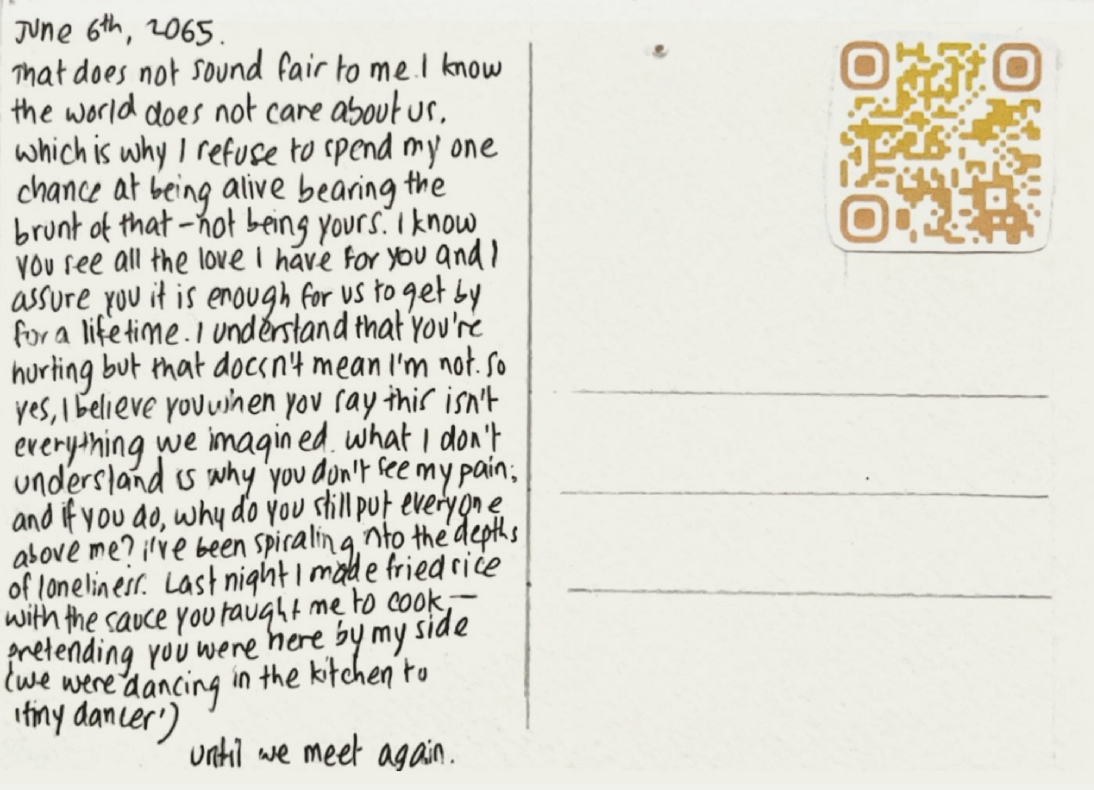 June 6th, 2065.
That does not sound fair to me. I know
the world does not care about us.
which is why I refuse to spend my one
chance at being alive bearing the
brunt of that - not being yours. I know
you see all the love I have for you and I
assure you it is enough for us to get by
for a lifetime. I understand that you're
hurting but that doesn't mean I'm not. so
yes, I believe you when you say this isn't
everything we imagined. what I don't
understand is why you don't see my pain;
and if you do, why do you still put everyone
above me? i've been spiraling nto the depths
of loneliness. Last night I made fried rice
with the sauce you taught me to cook —
pretending you were here by my side
(we were dancing in the kitchen to
'tiny dancer')
until we meet again.